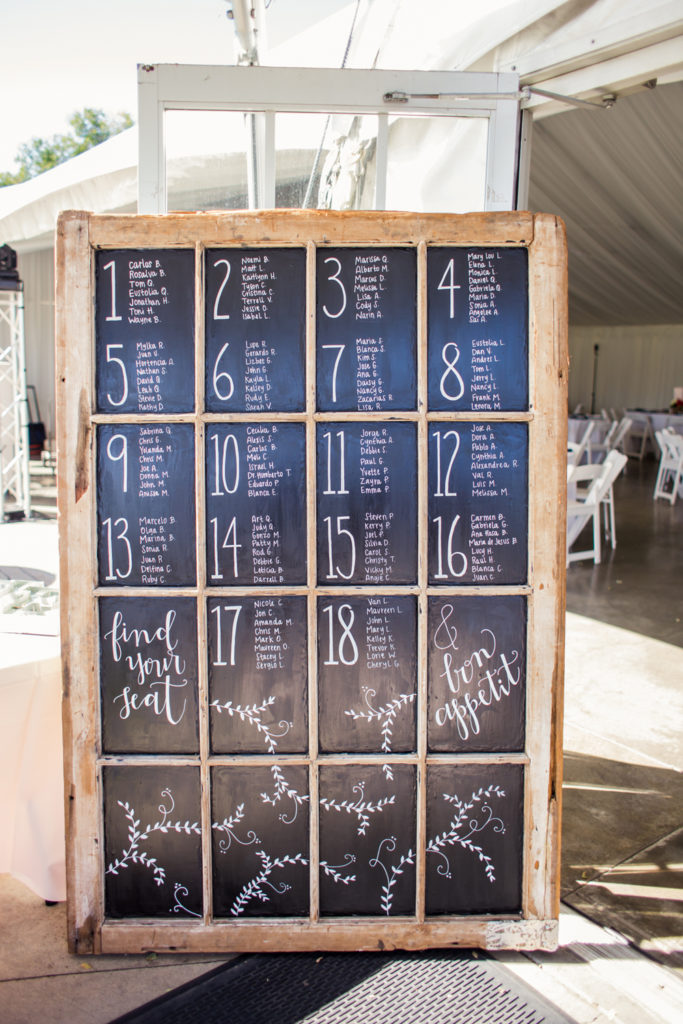 1
Carlos B.
Rosalva B.
Tom Q.
Eustolia Q.
Jonathan H.
Toni H.
Wayne B.
2
Noemi B.
Matt L.
Kaitlynn H.
Tyson C.
Cristina C.
Terrell V.
Jessie O.
Isabel L.
3
Marissa Q.
Alberto M.
Marcus D.
Melissa L.
Lisa A.
Cody S.
Narin A.
4
Mary Lou L.
Elena L.
Monica L.
Daniel Q.
Gabriela Q.
Maria D.
Sonia A.
Angelee A.
Sai A.
5
Mylka R.
Juan V.
Hortencia A.
Nathan S.
David Q.
Leah Q.
Stevie D.
Kathy D.
6
Lupe R.
Gerardo R.
Lizbee G.
John G.
Kayla L.
Kelsey D.
Rudy E.
Sarah V.
7
Maria S.
Blanca S.
Kim S.
Jose G.
Ana G.
Daisy G.
Nancy G.
Zacarias R.
Lisa R.
8
Eustolia L.
Dan V.
Andres L.
Tom L.
Jerry L.
Nancy L.
Frank M.
Lenora M.
9
Sabrina G.
Chris G.
Yolanda M.
Chris M.
Joe A.
Donna M.
John M.
Anissa M.
10
Cecilia B.
Alexis S.
Carlos B.
Meli C.
Israel H.
Dr. Humberto T.
Eduardo P.
Blanca E.
11
Jorge R.
Cynthia A.
Debbie S.
Paul G.
Yvette P.
Zayra P.
Emma P.
12
Jose A.
Dora A.
Pablo A.
Cynthia A.
Alexandrea R.
Val R.
Luis M.
Melissa M.
13
Marcelo B.
Olga B.
Marina B.
Sonia R.
Juan R.
Delfina C.
Ruby C.
14
Art Q.
Judy Q.
Gonzo M.
Patty M.
Rod G.
Debbie G.
Leticia B.
Darrell B.
15
Steven P.
Kerry P.
Joel P.
Silvia D.
Carol S.
Christy T.
Vicky M.
Angie C.
16
Carmen B.
Gabriela G.
Ana Rosa B.
Maria de Jesus B.
Lucy H.
Raul H.
Blanca C.
Juan C.
find
your
seat
17
Nicole C.
Jon C.
Amanda M.
Chris M.
Mark O.
Maureen O.
Stacey L.
Sergio L.
18
Van L.
Maureen L.
John L.
Mary L.
Kelley K.
Trevor K.
Lorie W.
Cheryl G.
&
bon
appetit